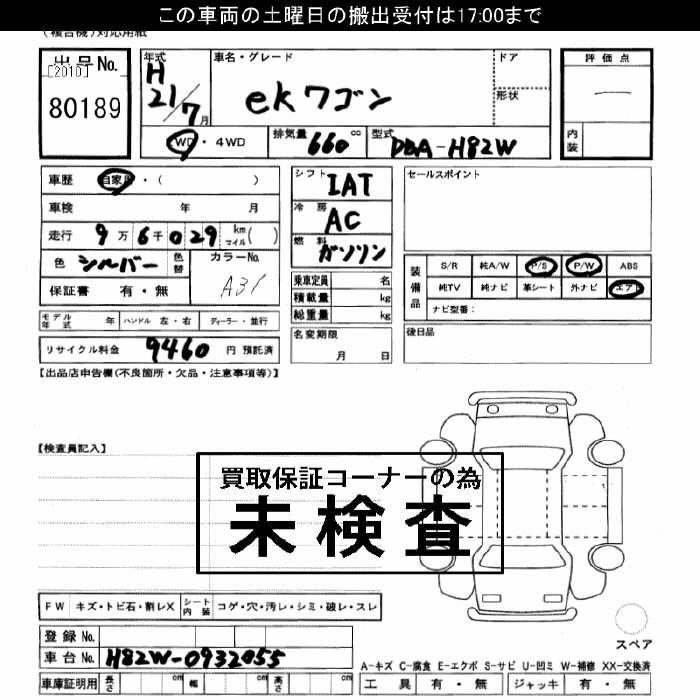 この車両の土曜日の搬出受付は17:00まで
(複合機)対応用紙
出品No.
[2010]
80189
年式
H
21/7月
車名・グレード
ekワゴン
ドア
形状
評価点
—
内装
2WD・4WD
排気量 660 cc
型式 DBA-H82W
車歴 自家用・( )
車検 年 月
走行 9万6千029 km マイル( )
色 シルバー 色替
カラーNo.
A31
保証書 有・無
モデル年式 年 ハンドル 左・右 ディーラー・並行
リサイクル料金 9460 円 預託済
シフト IAT
冷房 AC
燃料 ガソリン
乗車定員 名
積載量 kg
総重量 kg
名変期限
月 日
セールスポイント
装備品
S/R 純A/W P/S P/W ABS
純TV 純ナビ 革シート 外ナビ エアB
ナビ型番:
後日品
【出品店申告欄(不良箇所・欠品・注意事項等)】
【検査員記入】
買取保証コーナーの為
未検査
FW キズ・トビ石・割レX シート内装 コゲ・穴・汚レ・シミ・破レ・スレ
登録No.
車台No. H82W-0932055
車庫証明用 長さ cm 幅 cm 高さ cm
スペア
A-キズ C-腐食 E-エクボ S-サビ U-凹ミ W-補修 XX-交換済
工具 有・無 ジャッキ 有・無